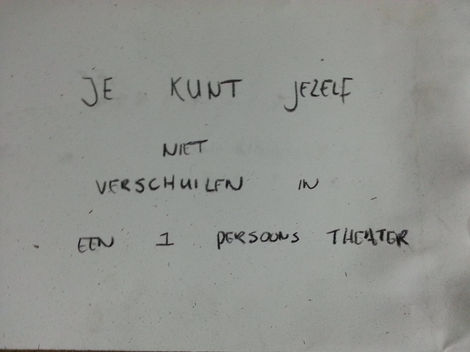 JE KUNT JEZELF
NIET
VERSCHUILEN IN
EEN 1 PERSOONS THEATER